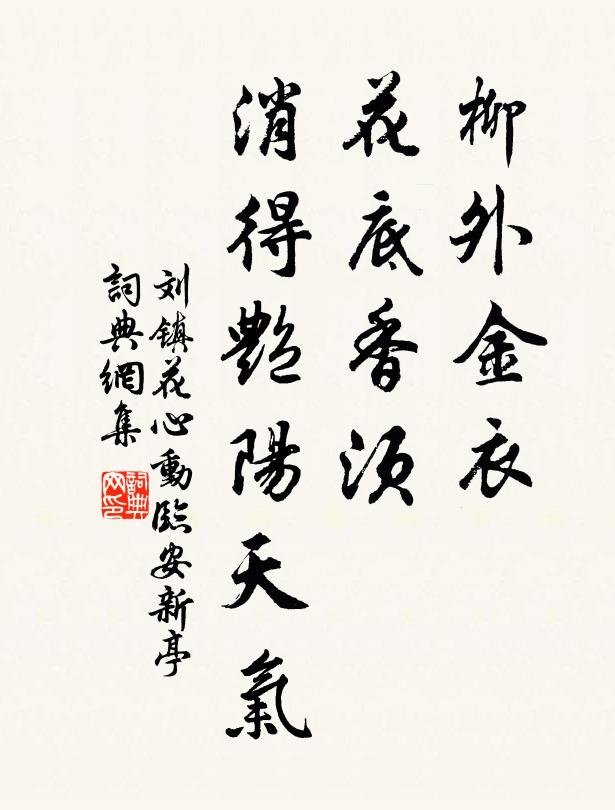 柳外金衣
花底香须
消得艷陽天氣
刘镇花心動臨安新亭
詞典網集
詞典
网印